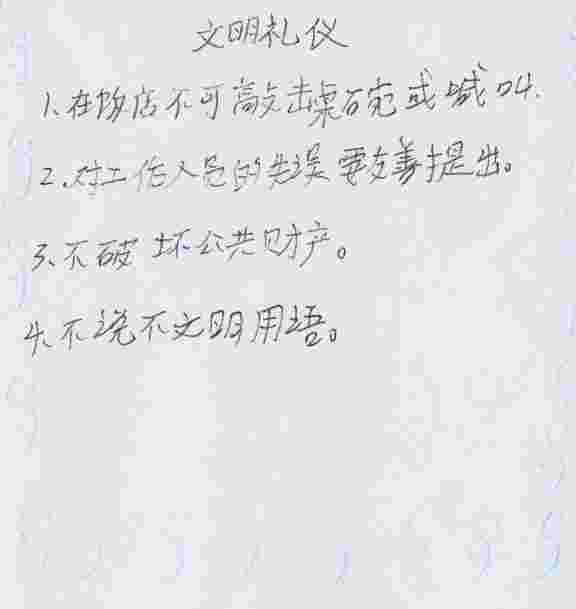 文明礼仪
1、在饭店不可敲击桌碗或喊叫.
2、对工作人员的失误要友善提出。
3、不破坏公共财产。
4、不说不文明用语。